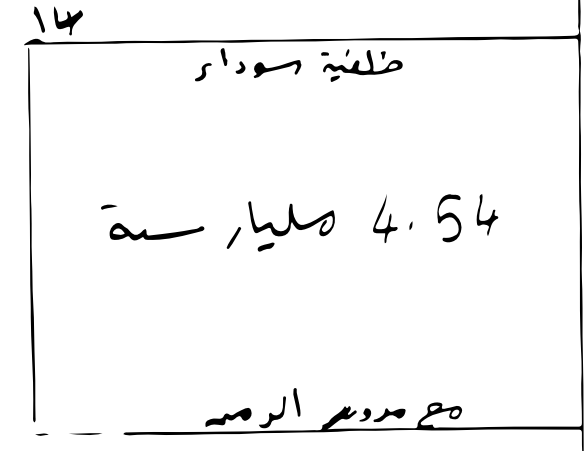 ١٣
خلفية سوداء
4.54 مليار سنة
مع مرور الزمن